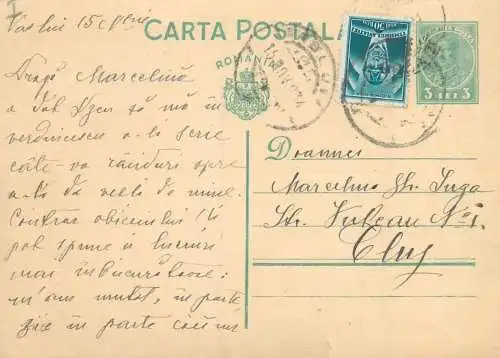 Vaslui 15
CARTA POSTALA
ROMANIA
3 LEI 3
Dragă Marcelino
a dat să mă în
verdincescu a-ți scrie
câte-va rânduri spre
a-ți da vești de mine.
Contrar obiceiului îți
pot spune și lucruri
mai îmbucurătoare:
m'am mutat, în parte
zice în parte
Doamnei
Marcelina Gh. Juga
Str. Vulcan No 1.
Cluj